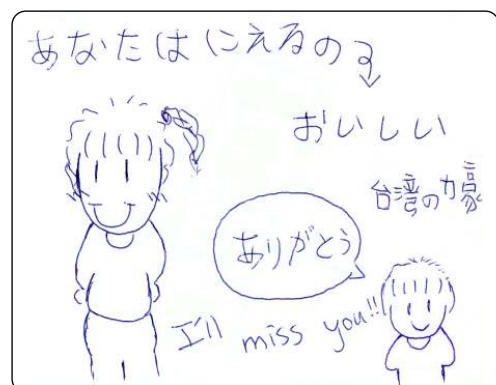 あなたは にえるの
おいしい
台湾の
ありがとう
I'll miss you!!